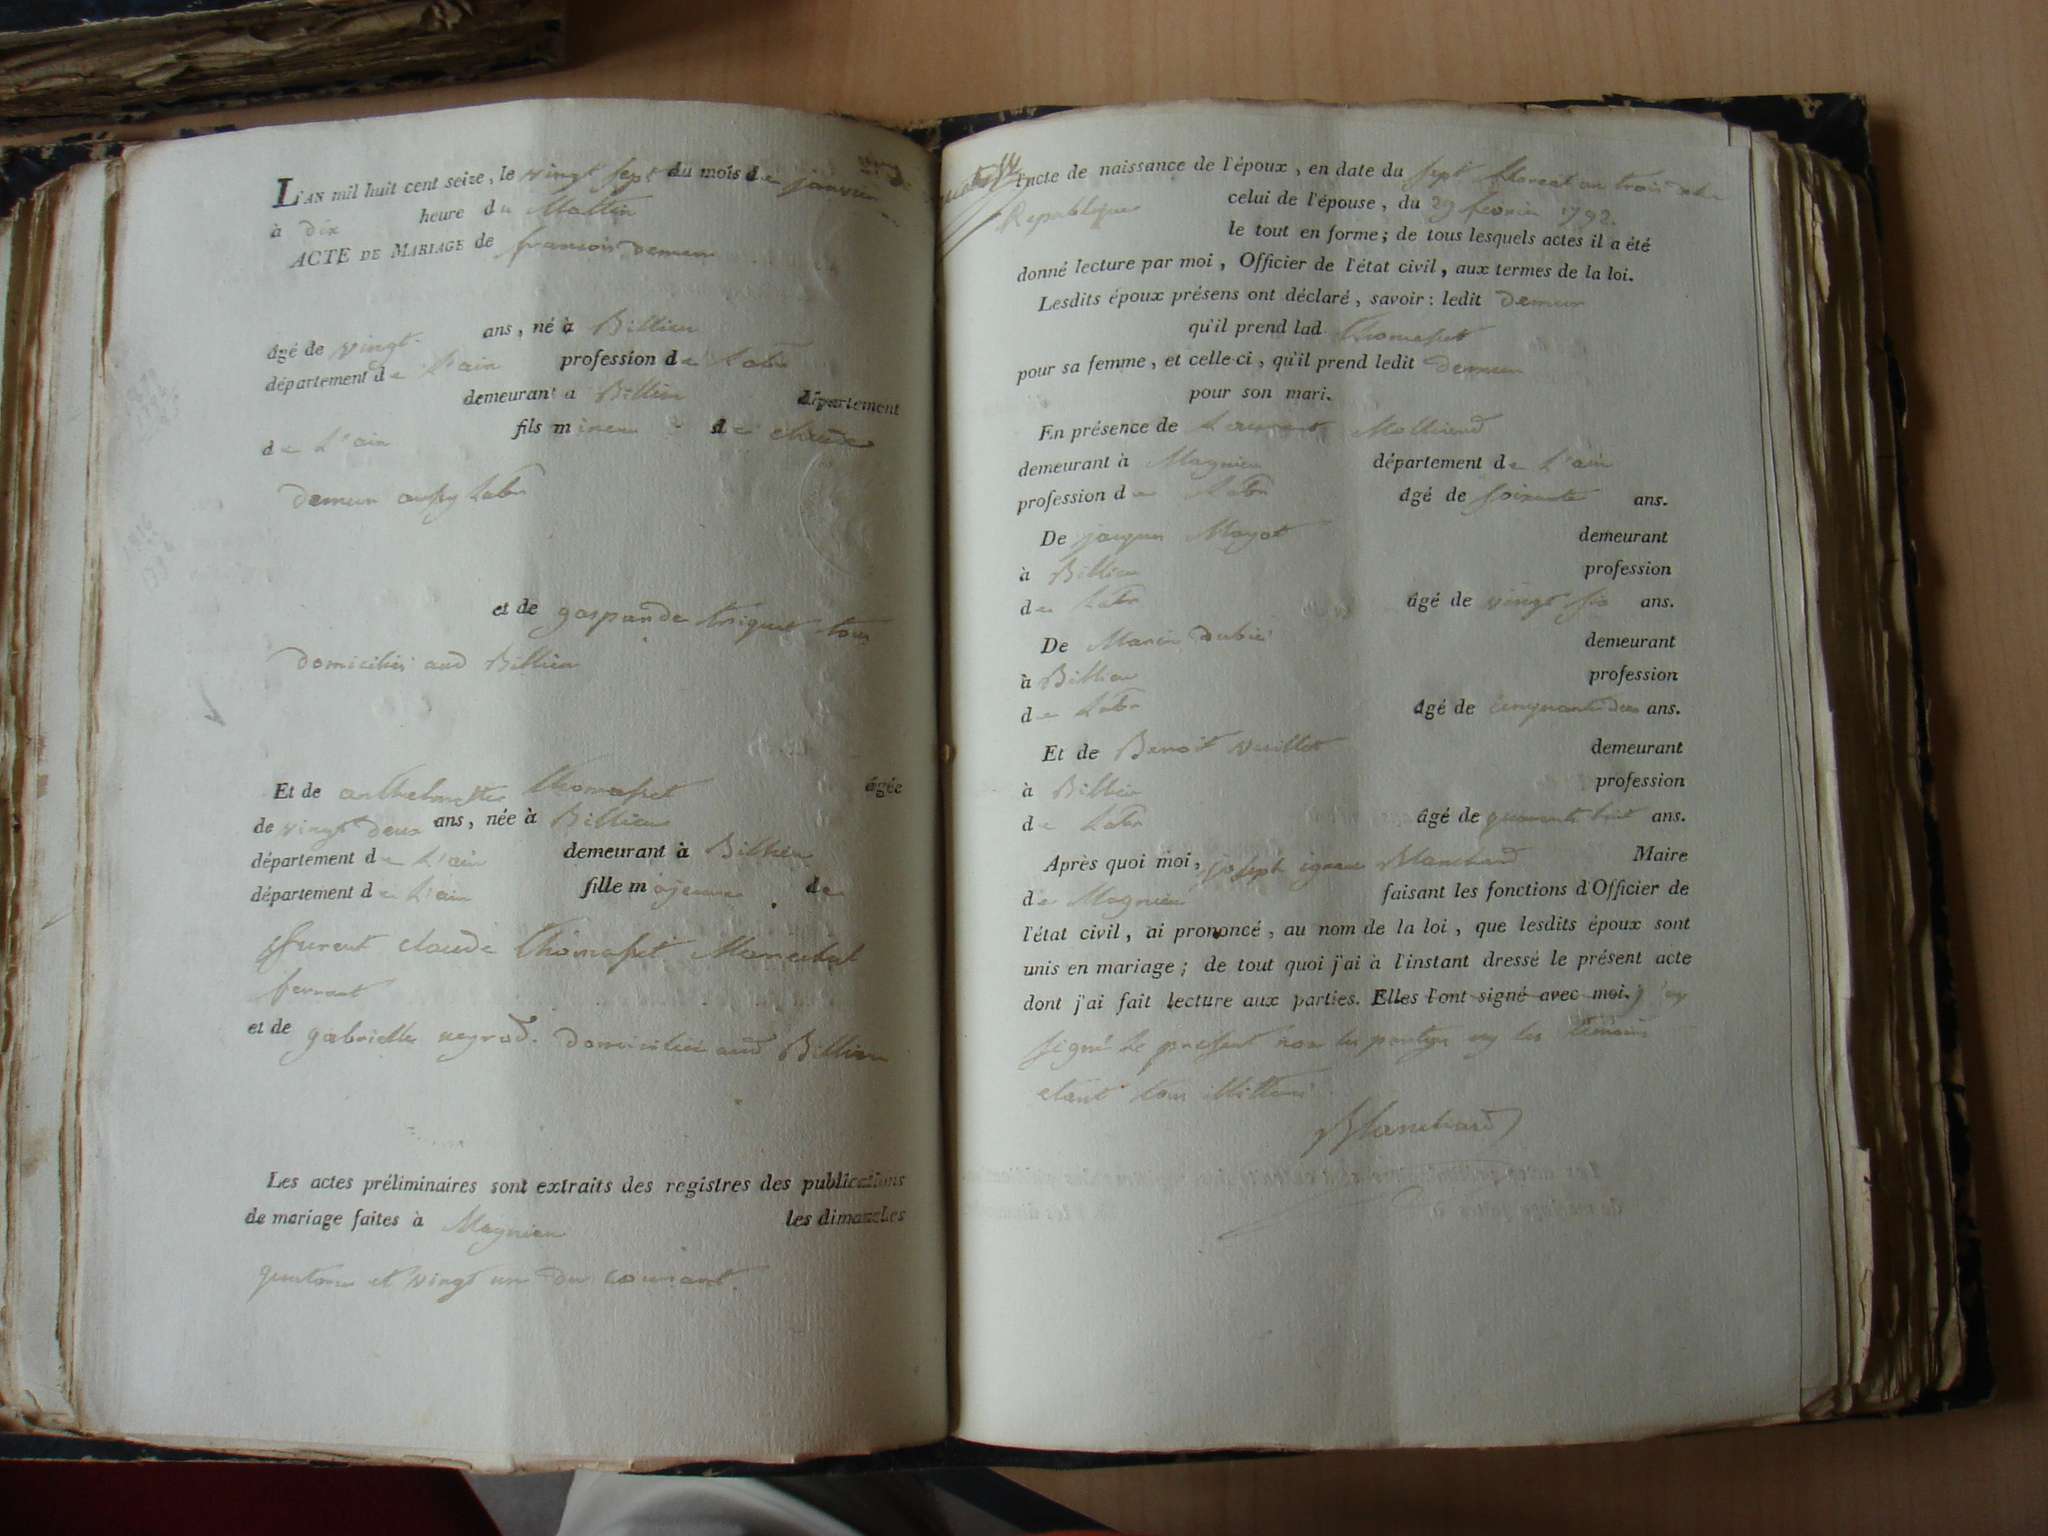 L'AN mil huit cent seize, le vingt sept du mois de janvier
à dix heure du Mattin
ACTE DE MARIAGE de francois demeur
âgé de vingt ans, né à Billieu
département de L'ain profession de Labr
demeurant a Billieu département
de L'ain fils mineur de claude
demeur aussy Labr
et de gasparde triquet tous
domiciliés aud Billieu
Et de anthelmette thomasset âgée
de vingt deux ans, née à Billieu
département de L'ain demeurant à Billieu
département de L'ain fille majeure de
furent claude thomasset Marechal
ferrant
et de gabrielle neyrod. domiciliés aud Billieu
Les actes préliminaires sont extraits des registres des publications
de mariage faites à Magnieu les dimanches
quatorze et vingt un du courant.
l'acte de naissance de l'époux, en date du sept floreal an trois de la
Republique celui de l'épouse, du 29 fevrier 1792.
le tout en forme; de tous lesquels actes il a été
donné lecture par moi, Officier de l'état civil, aux termes de la loi.
Lesdits époux présens ont déclaré, savoir: ledit demeur
qu'il prend lad thomasset
pour sa femme, et celle-ci, qu'il prend ledit demeur
pour son mari.
En présence de Laurent Molliend
demeurant à Magnieu département de L'ain
profession de Labr âgé de soixante ans.
De jacques Mayot demeurant
à Billieu profession
de Labr âgé de vingt six ans.
De Marin dubié demeurant
à Billieu profession
de Labr âgé de cinquante deux ans.
Et de Benoit vuillot demeurant
à Billieu profession
de Labr âgé de quarante huit ans.
Après quoi moi, joseph ignace Blanchard Maire
de Magnieu faisant les fonctions d'Officier de
l'état civil, ai prononcé, au nom de la loi, que lesdits époux sont
unis en mariage; de tout quoi j'ai à l'instant dressé le présent acte
dont j'ai fait lecture aux parties. Elles l'ont signé avec moi. j'ay
signé le present non les partyes ny les temoins
etant tous illitteré
Blanchard